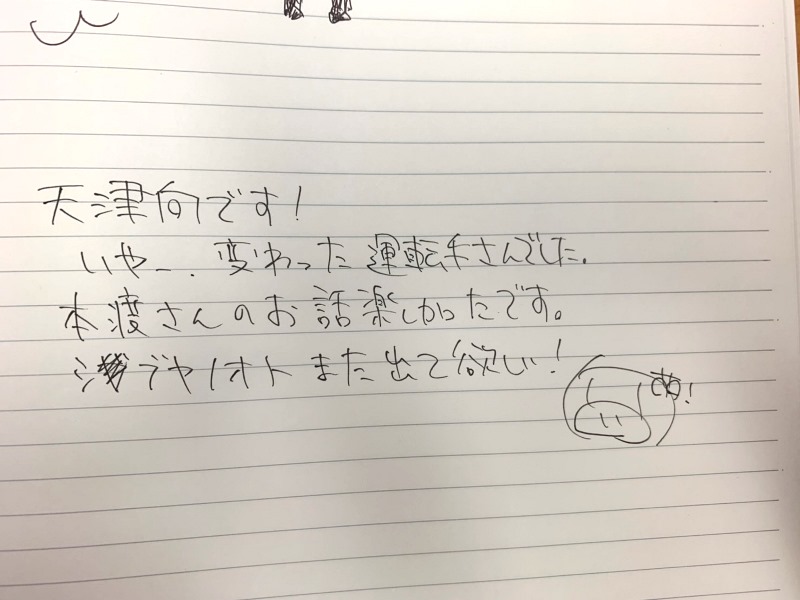 天津向です!
いやー、変わった運転手さんでした。
本渡さんのお話楽しかったです。
また出て欲しい!